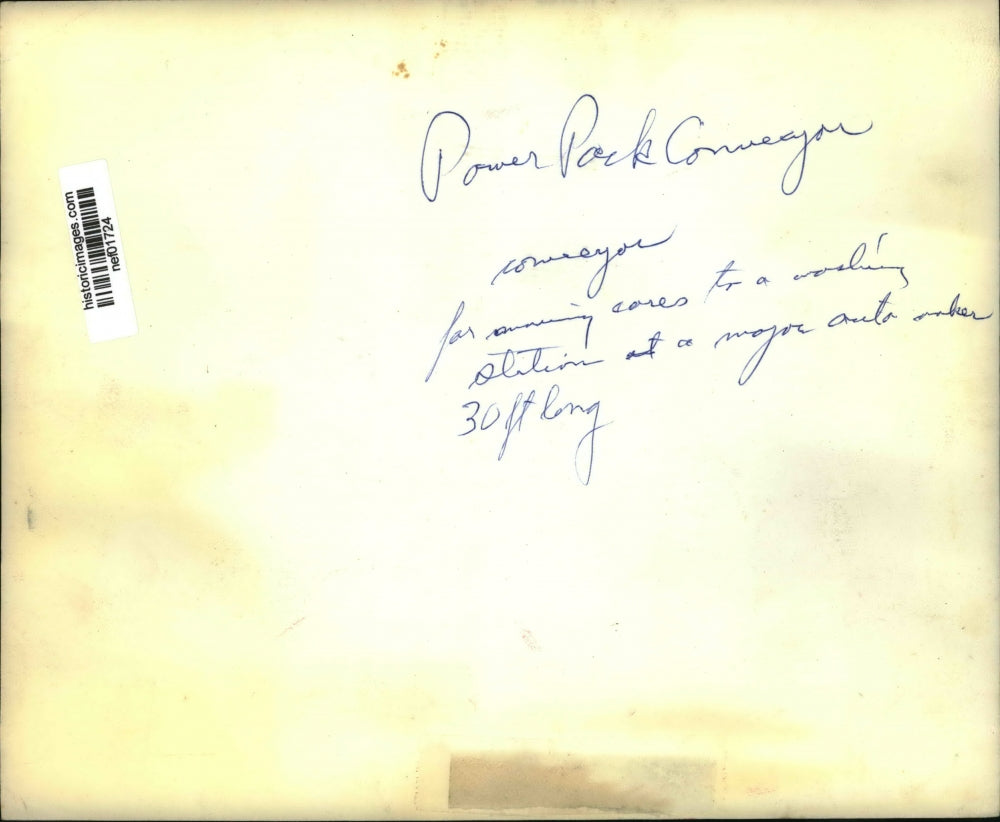 Power Pack Conveyor
conveyor
for moving cores to a washing
station at a major auto maker
30 ft long
historicimages.com
nef01724